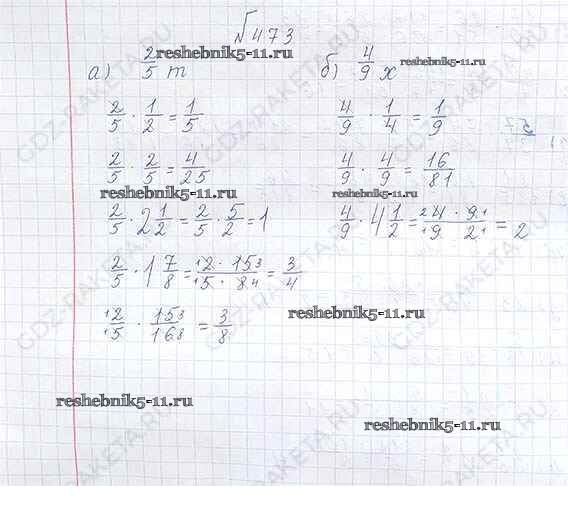 №473
reshebnik5-11.ru
а) 2/5 m
б) 4/9 x
reshebnik5-11.ru
2/5 · 1/2 = 1/5
4/9 · 1/4 = 1/9
2/5 · 2/5 = 4/25
4/9 · 4/9 = 16/81
reshebnik5-11.ru
reshebnik5-11.ru
2/5 · 2 1/2 = 2/5 · 5/2 = 1
4/9 · 4 1/2 = 2 4 · 9 1 / 1 9 · 2 1 = 2
2/5 · 1 7/8 = 1 2 · 15 3 / 1 5 · 8 4 = 3/4
1 2 / 1 5 · 15 3 / 16 8 = 3/8
reshebnik5-11.ru
reshebnik5-11.ru
reshebnik5-11.ru
GDZ-RAKETA.RU
GDZ-RAKETA.RU
GDZ-RAKETA.RU
GDZ-RAKETA.RU